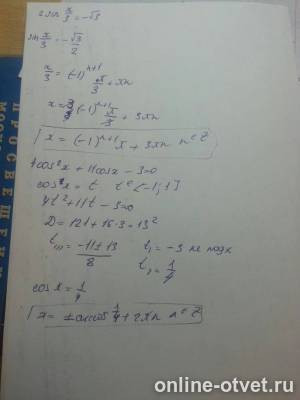 2 sin x/3 = -√3
sin x/3 = -√3/2
x/3 = (-1)^(n+1) π/3 + πn
x = 3(-1)^(n+1) π/3 + 3πn
x = (-1)^(n+1) π + 3πn n∈Z
4cos²x + 11cosx - 3 = 0
t∈[-1;1]
4t² + 11t - 3 = 0
D = 121 + 16·3 = 13²
t₁,₂ = (-11 ± 13)/8 t₁ = -3 не подх
t₂ = 1/4
cos x = 1/4
x = ±arccos 1/4 + 2πn n∈Z
ПРОСВЕЩЕНИ
online-otvet.ru